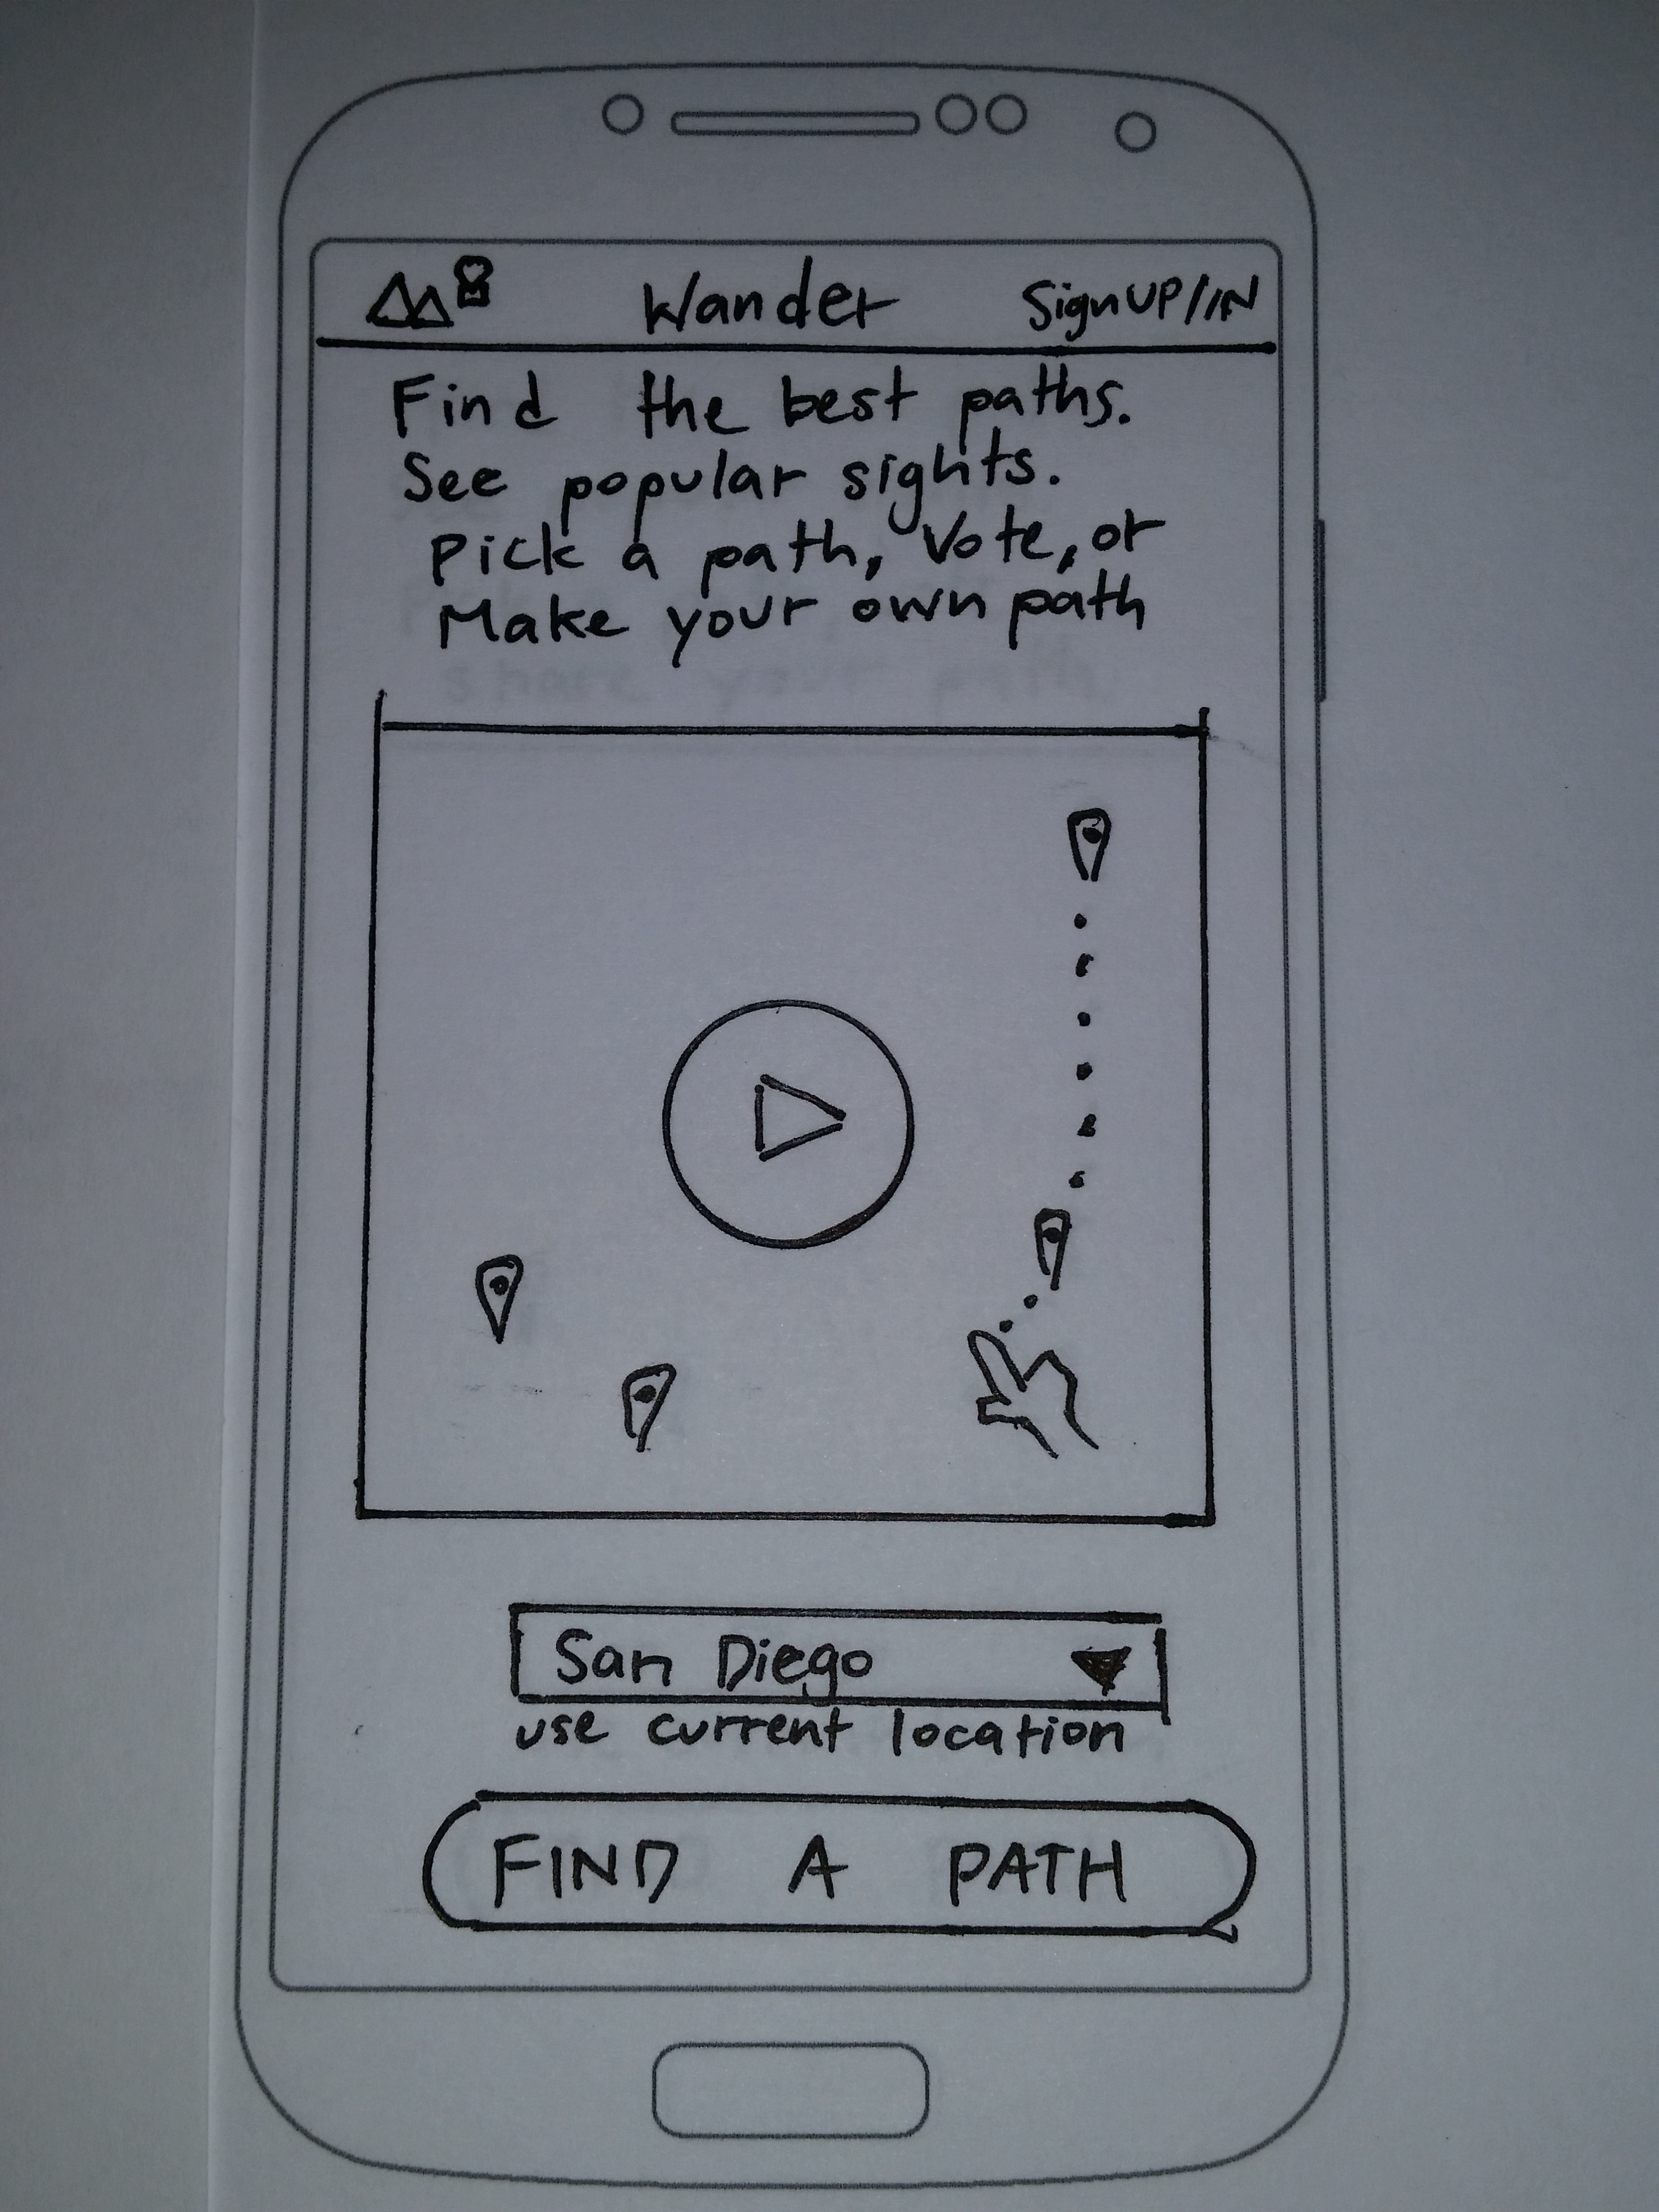 Wander SignUP/IN
Find the best paths.
See popular sights.
Pick a path, Vote, or
Make your own path
share your path
San Diego
use current location
FIND A PATH